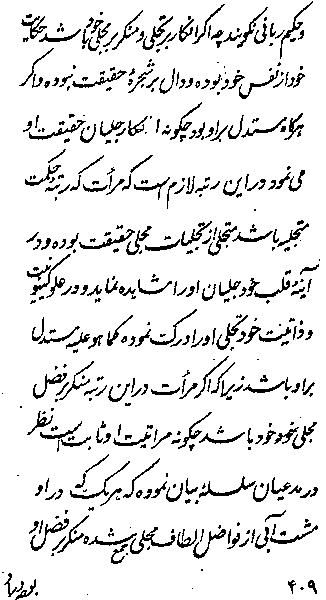 و حکیم ربانی نگویند چه اگر انکار بر تجلی و منکر بر مجلی خود باشد حکایت
خود از نفس خود بوده و دال بر شجرهٔ حقیقت نبوده و اگر
هرگاه مستدل بر او بود چگونه انکار جلیان حقیقت او
می نمود در این رتبه لازم است که مرآت که رتبه حکمت
متجلیه باشد متجلی از تجلیات مجلی حقیقت بوده و در
آینهٔ قلب خود جلیان او را مشاهده نماید و در علو کینونیت
و ذاتیت خود تجلی او را درک نموده کما هو علیه مستدل
بر او باشد زیرا که اگر مرآت در این رتبه منکر فضل
مجلی خود باشد چگونه مراتیت او ثابت است نظر
در مدعیان سلسلهٔ بیان نموده که هر یک که در او
مشت آبی از فواضل الطاف مجلی جمع شده منکر فضل او
۴۰۹